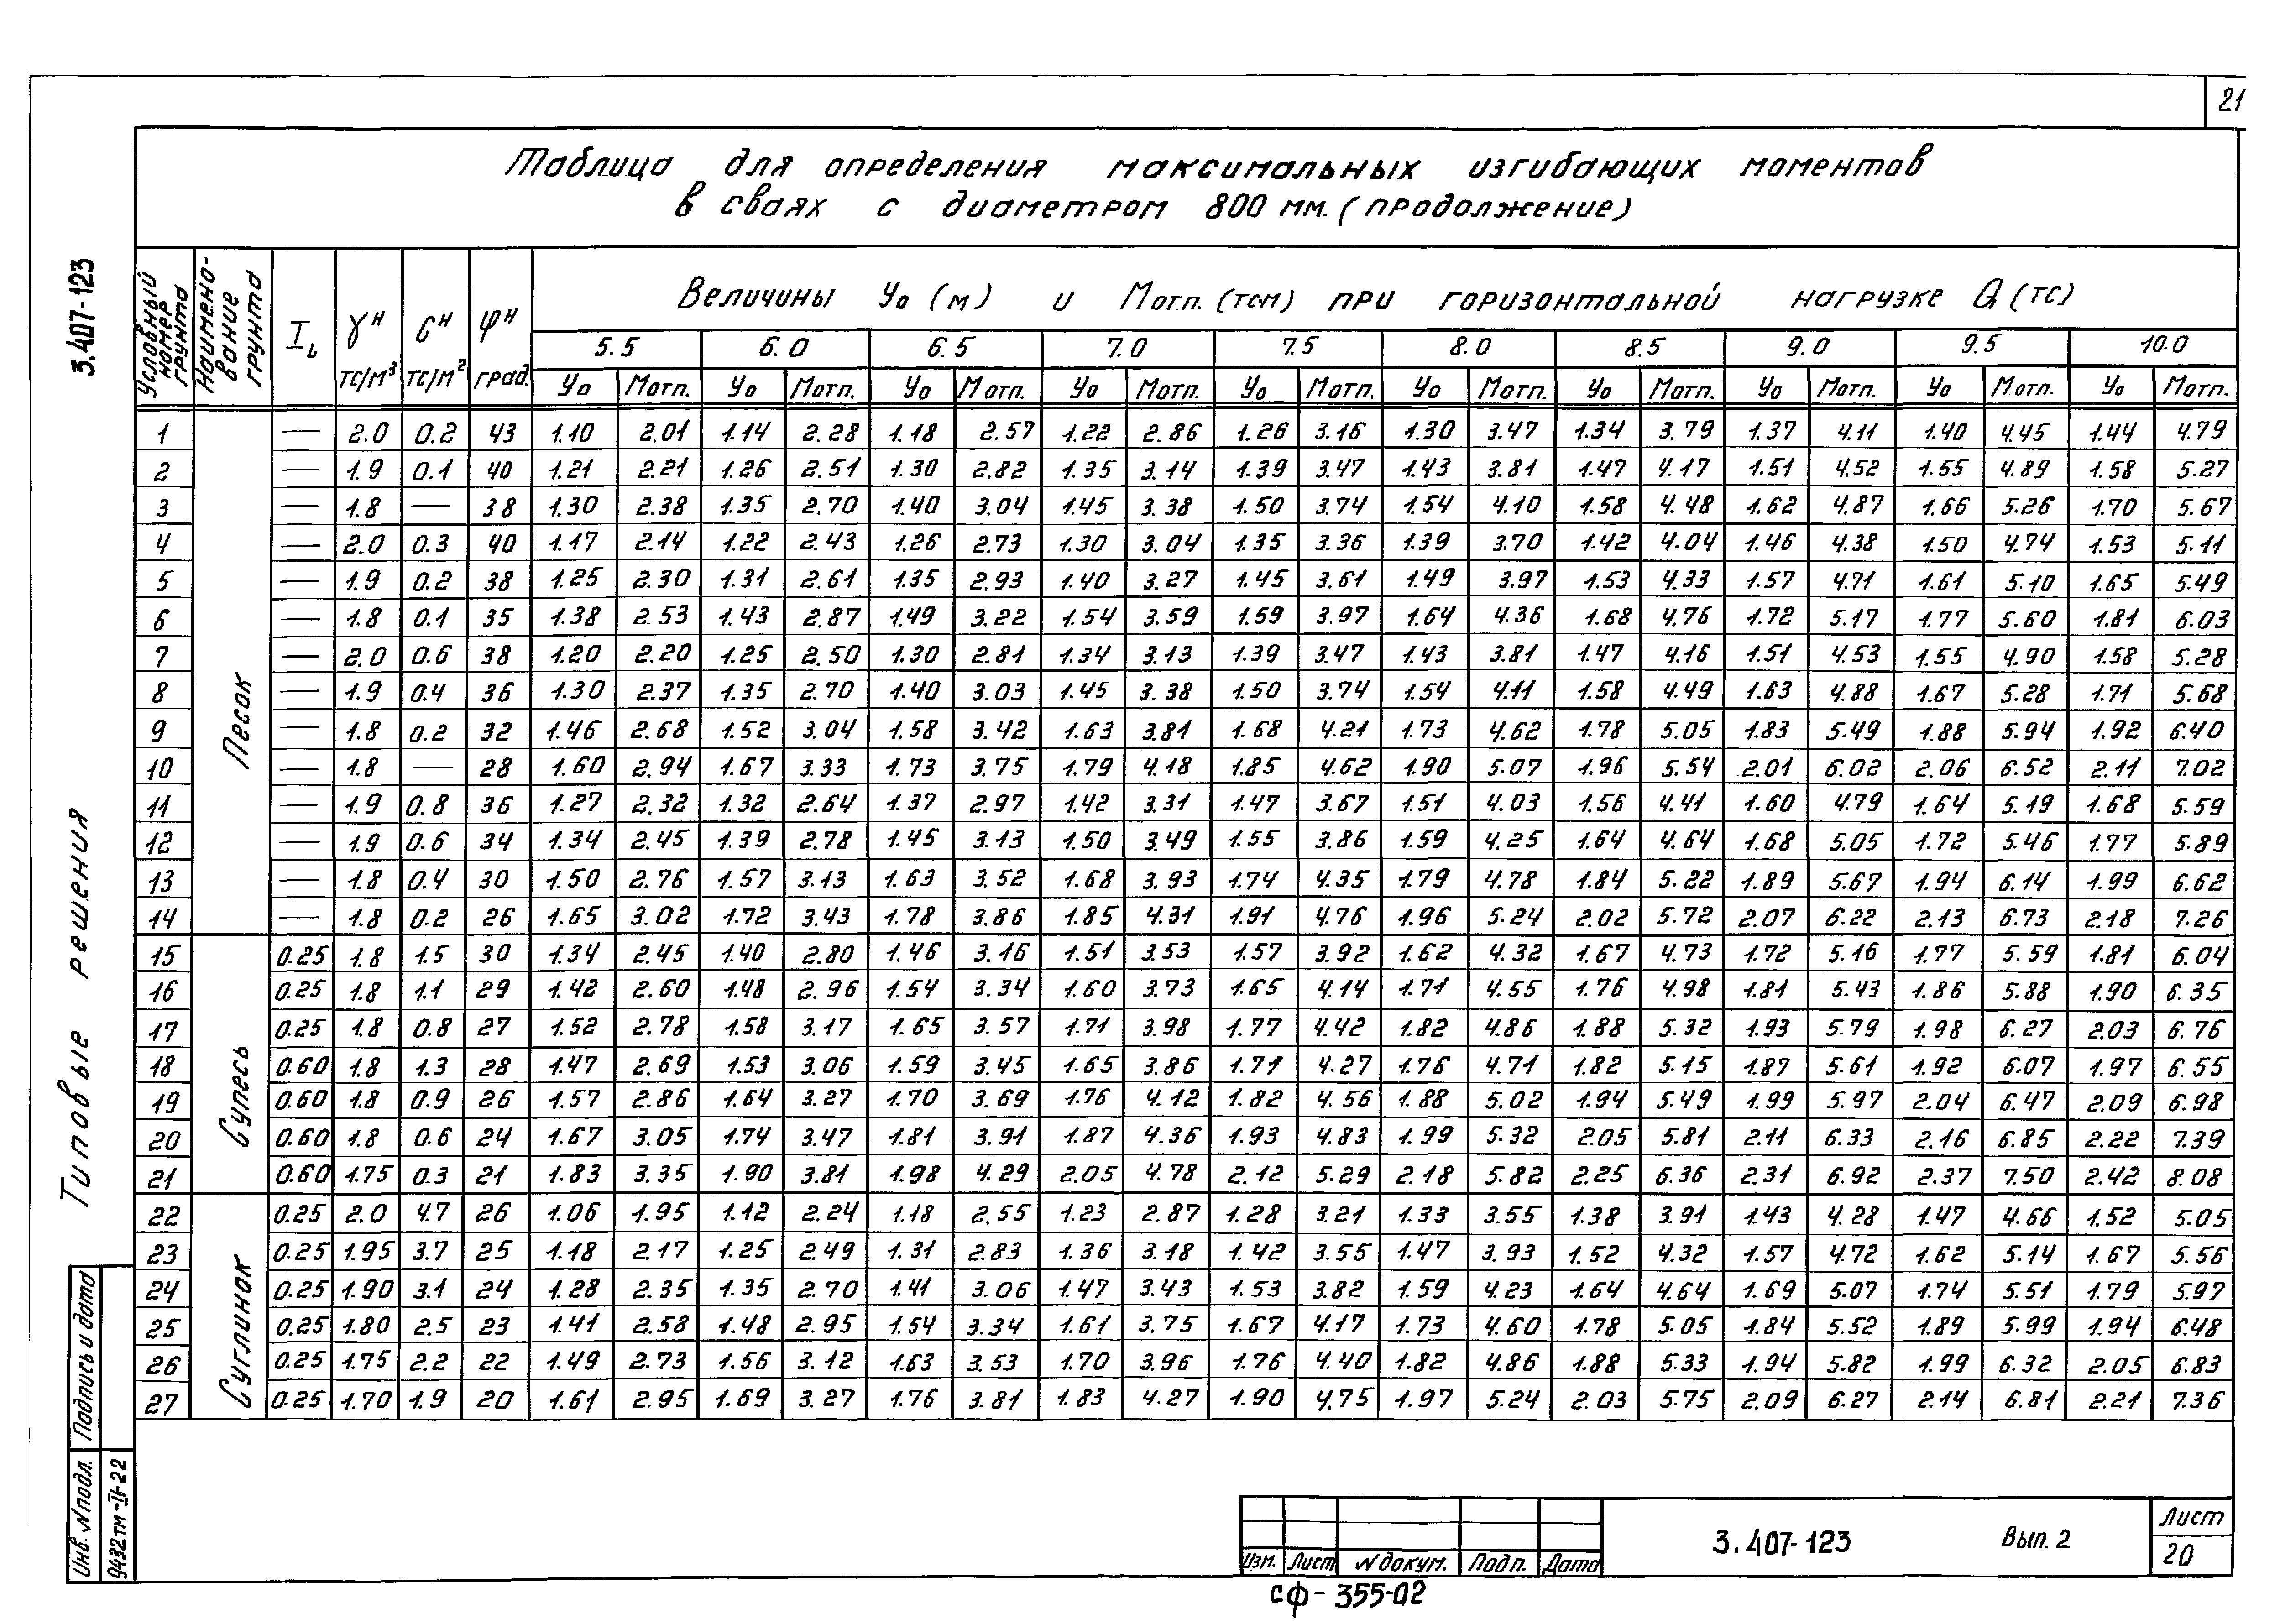 21
Таблица для определения максимальных изгибающих моментов
в сваях с диаметром 800 мм. (продолжение)
3.407-123
Типовые решения
Условный номер грунта
Наименование грунта
I_L
γᴴ тс/м³
Cᴴ тс/м²
φᴴ град.
Величины У₀ (м) и Мотп. (тсм) при горизонтальной нагрузке Q (тс)
5.5 6.0 6.5 7.0 7.5 8.0 8.5 9.0 9.5 10.0
У₀ Мотп. У₀ Мотп. У₀ Мотп. У₀ Мотп. У₀ Мотп. У₀ Мотп. У₀ Мотп. У₀ Мотп. У₀ Мотп. У₀ Мотп.
Песок
1 — 2.0 0.2 43 1.10 2.01 1.14 2.28 1.18 2.57 1.22 2.86 1.26 3.16 1.30 3.47 1.34 3.79 1.37 4.11 1.40 4.45 1.44 4.79
2 — 1.9 0.1 40 1.21 2.21 1.26 2.51 1.30 2.82 1.35 3.14 1.39 3.47 1.43 3.81 1.47 4.17 1.51 4.52 1.55 4.89 1.58 5.27
3 — 1.8 — 38 1.30 2.38 1.35 2.70 1.40 3.04 1.45 3.38 1.50 3.74 1.54 4.10 1.58 4.48 1.62 4.87 1.66 5.26 1.70 5.67
4 — 2.0 0.3 40 1.17 2.14 1.22 2.43 1.26 2.73 1.30 3.04 1.35 3.36 1.39 3.70 1.42 4.04 1.46 4.38 1.50 4.74 1.53 5.11
5 — 1.9 0.2 38 1.25 2.30 1.31 2.61 1.35 2.93 1.40 3.27 1.45 3.61 1.49 3.97 1.53 4.33 1.57 4.71 1.61 5.10 1.65 5.49
6 — 1.8 0.1 35 1.38 2.53 1.43 2.87 1.49 3.22 1.54 3.59 1.59 3.97 1.64 4.36 1.68 4.76 1.72 5.17 1.77 5.60 1.81 6.03
7 — 2.0 0.6 38 1.20 2.20 1.25 2.50 1.30 2.81 1.34 3.13 1.39 3.47 1.43 3.81 1.47 4.16 1.51 4.53 1.55 4.90 1.58 5.28
8 — 1.9 0.4 36 1.30 2.37 1.35 2.70 1.40 3.03 1.45 3.38 1.50 3.74 1.54 4.11 1.58 4.49 1.63 4.88 1.67 5.28 1.71 5.68
9 — 1.8 0.2 32 1.46 2.68 1.52 3.04 1.58 3.42 1.63 3.81 1.68 4.21 1.73 4.62 1.78 5.05 1.83 5.49 1.88 5.94 1.92 6.40
10 — 1.8 — 28 1.60 2.94 1.67 3.33 1.73 3.75 1.79 4.18 1.85 4.62 1.90 5.07 1.96 5.54 2.01 6.02 2.06 6.52 2.11 7.02
11 — 1.9 0.8 36 1.27 2.32 1.32 2.64 1.37 2.97 1.42 3.31 1.47 3.67 1.51 4.03 1.56 4.41 1.60 4.79 1.64 5.19 1.68 5.59
12 — 1.9 0.6 34 1.34 2.45 1.39 2.78 1.45 3.13 1.50 3.49 1.55 3.86 1.59 4.25 1.64 4.64 1.68 5.05 1.72 5.46 1.77 5.89
13 — 1.8 0.4 30 1.50 2.76 1.57 3.13 1.63 3.52 1.68 3.93 1.74 4.35 1.79 4.78 1.84 5.22 1.89 5.67 1.94 6.14 1.99 6.62
14 — 1.8 0.2 26 1.65 3.02 1.72 3.43 1.78 3.86 1.85 4.31 1.91 4.76 1.96 5.24 2.02 5.72 2.07 6.22 2.13 6.73 2.18 7.26
Супесь
15 0.25 1.8 1.5 30 1.34 2.45 1.40 2.80 1.46 3.16 1.51 3.53 1.57 3.92 1.62 4.32 1.67 4.73 1.72 5.16 1.77 5.59 1.81 6.04
16 0.25 1.8 1.1 29 1.42 2.60 1.48 2.96 1.54 3.34 1.60 3.73 1.65 4.14 1.71 4.55 1.76 4.98 1.81 5.43 1.86 5.88 1.90 6.35
17 0.25 1.8 0.8 27 1.52 2.78 1.58 3.17 1.65 3.57 1.71 3.98 1.77 4.42 1.82 4.86 1.88 5.32 1.93 5.79 1.98 6.27 2.03 6.76
18 0.60 1.8 1.3 28 1.47 2.69 1.53 3.06 1.59 3.45 1.65 3.86 1.71 4.27 1.76 4.71 1.82 5.15 1.87 5.61 1.92 6.07 1.97 6.55
19 0.60 1.8 0.9 26 1.57 2.86 1.64 3.27 1.70 3.69 1.76 4.12 1.82 4.56 1.88 5.02 1.94 5.49 1.99 5.97 2.04 6.47 2.09 6.98
20 0.60 1.8 0.6 24 1.67 3.05 1.74 3.47 1.81 3.91 1.87 4.36 1.93 4.83 1.99 5.32 2.05 5.81 2.11 6.33 2.16 6.85 2.22 7.39
21 0.60 1.75 0.3 21 1.83 3.35 1.90 3.81 1.98 4.29 2.05 4.78 2.12 5.29 2.18 5.82 2.25 6.36 2.31 6.92 2.37 7.50 2.42 8.08
Суглинок
22 0.25 2.0 4.7 26 1.06 1.95 1.12 2.24 1.18 2.55 1.23 2.87 1.28 3.21 1.33 3.55 1.38 3.91 1.43 4.28 1.47 4.66 1.52 5.05
23 0.25 1.95 3.7 25 1.18 2.17 1.25 2.49 1.31 2.83 1.36 3.18 1.42 3.55 1.47 3.93 1.52 4.32 1.57 4.72 1.62 5.14 1.67 5.56
24 0.25 1.90 3.1 24 1.28 2.35 1.35 2.70 1.41 3.06 1.47 3.43 1.53 3.82 1.59 4.23 1.64 4.64 1.69 5.07 1.74 5.51 1.79 5.97
25 0.25 1.80 2.5 23 1.41 2.58 1.48 2.95 1.54 3.34 1.61 3.75 1.67 4.17 1.73 4.60 1.78 5.05 1.84 5.52 1.89 5.99 1.94 6.48
26 0.25 1.75 2.2 22 1.49 2.73 1.56 3.12 1.63 3.53 1.70 3.96 1.76 4.40 1.82 4.86 1.88 5.33 1.94 5.82 1.99 6.32 2.05 6.83
27 0.25 1.70 1.9 20 1.61 2.95 1.69 3.27 1.76 3.81 1.83 4.27 1.90 4.75 1.97 5.24 2.03 5.75 2.09 6.27 2.14 6.81 2.21 7.36
Инв. N подл. Подпись и дата
9432тм-II-22
Изм. Лист N докум. Подп. Дата
3.407-123 Вып. 2
Лист
20
сф-355-02